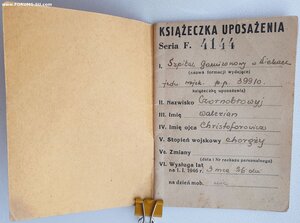 www.FORUMS-SU.com
KSIĄŻECZKA UPOSAŻENIA
Seria F. 4144
I. Szpital garnizonowy w Kielcach
(nazwa formacji wydającej
jedn. wojsk. p.p. 39910
książeczkę uposażenia)
II. Nazwisko Czornobrowy
III. Imię Walerian
IV. Imię ojca Christoforowicz
V. Stopień wojskowy chorąży
Vc. Zmiany
(data i Nr rozkazu personalnego)
VI. Wysługa lat
na 1. I. 1946 r. 3 mce 26 dni
na dzień mob.